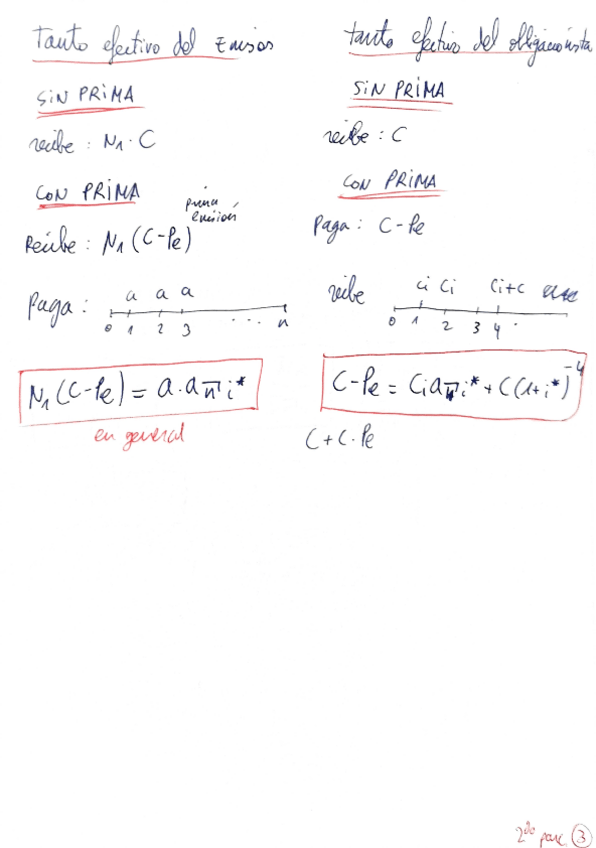 Tanto efectivo del Emisor
SIN PRIMA
recibe : N₁ · C
CON PRIMA
prima
emisión
Recibe : N₁ (C-Pe)
Paga :
a a a
0 1 2 3 ... n
N₁ (C-Pe) = a · a n̅ i*
en general
tanto efectivo del obligacionista
SIN PRIMA
recibe : C
CON PRIMA
Paga : C-Pe
recibe
Ci Ci Ci+C
0 1 2 3 4 .
C-Pe = Ci a 4̅ i* + C(1+i*)⁻⁴
C+C·Pe
2do parc. 3